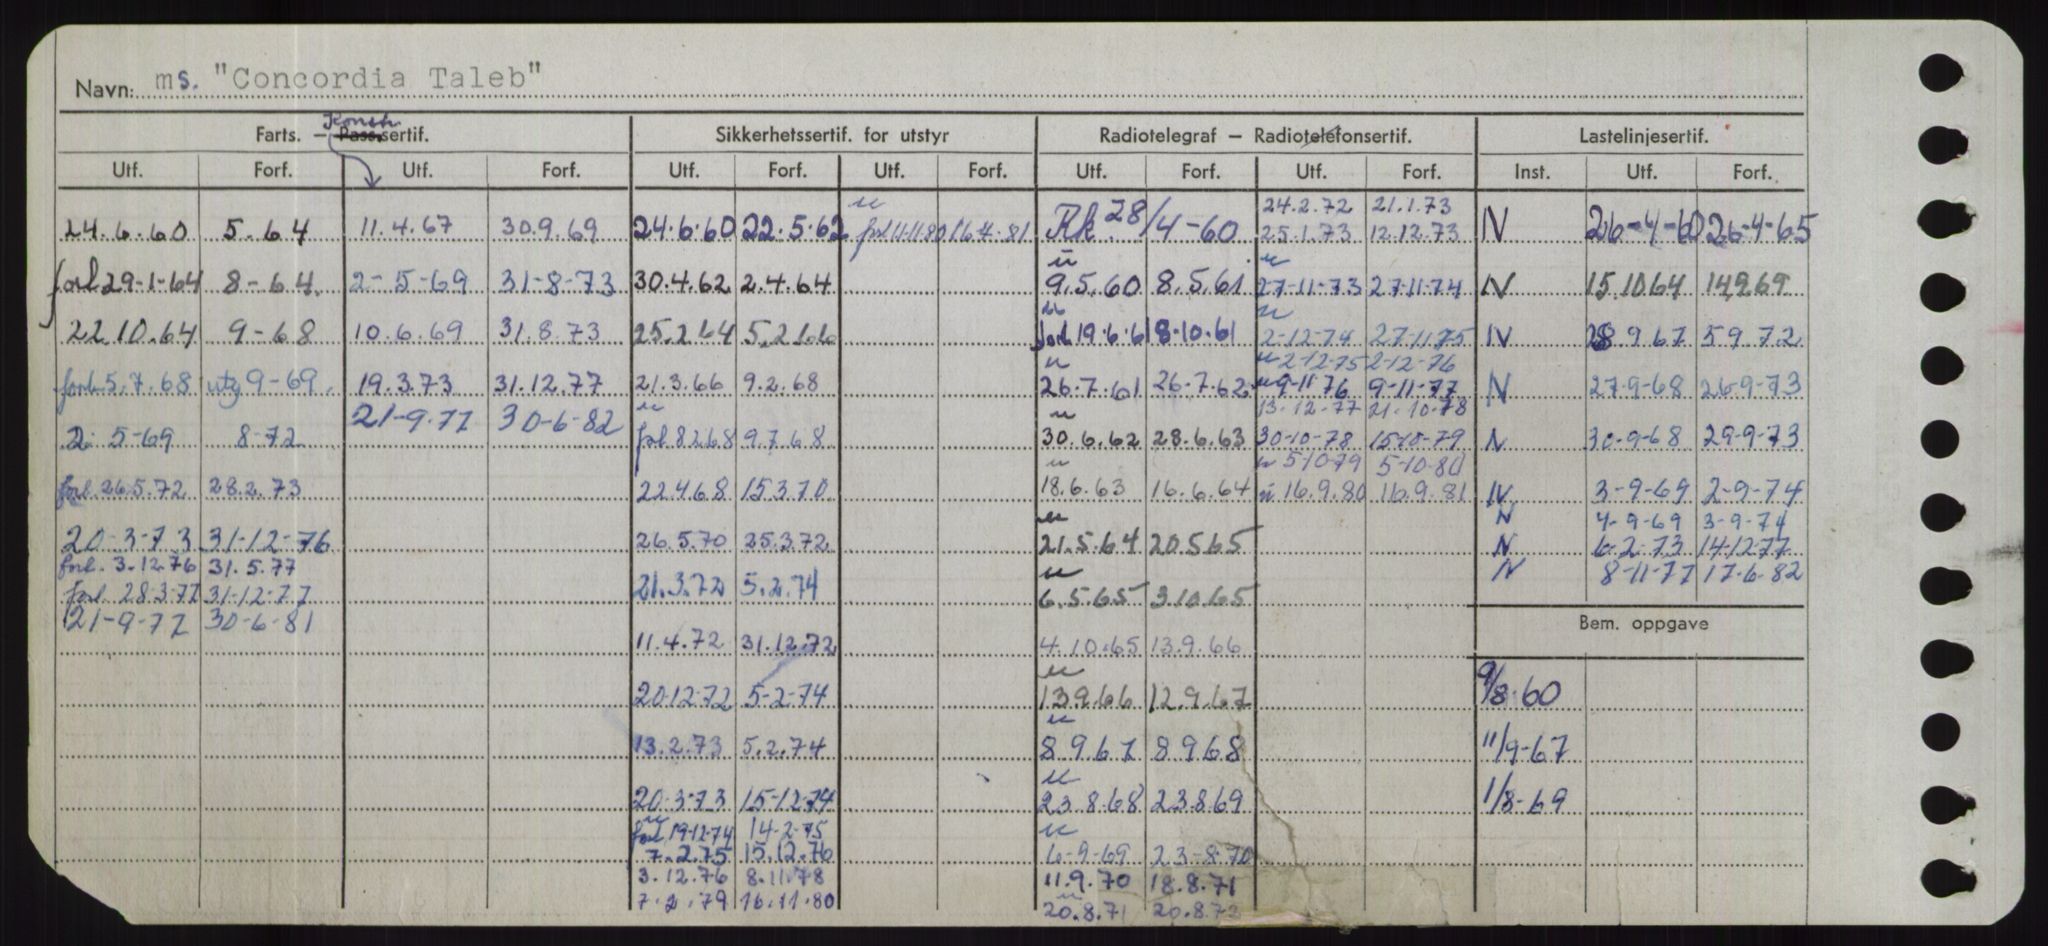 Navn: ms. "Concordia Taleb"
Farts. – Pass.sertif. Konstr. Sikkerhetssertif. for utstyr Radiotelegraf – Radiotelefonsertif. Lastelinjesertif.
Utf. Forf. Utf. Forf. Utf. Forf. Utf. Forf. Utf. Forf. Utf. Forf. Inst. Utf. Forf.
24.2.72 21.1.73
24.6.60 5.64 11.4.67 30.9.69 24.6.60 22.5.62 forl 11.11.80 16.4.81 Rk. 28/4-60 25.1.73 12.12.73 N 26-4-60 26-4-65
forl 29-1-64 8-64. 2-5-69 31-8-73 30.4.62 2.4.64 9.5.60 8.5.61 27-11-73 27-11-74 N 15.10 64 14.9.69
22.10.64 9-68 10.6.69 31.8.73 25.2.64 5.2.66 forl 19.6.61 8.10.61 2-12-74 27-11-75 N 28.9.67 5.9.72
2-12-75 2-12-76
forl. 5.7.68 utg 9-69. 19.3.73 31.12.77 21.3.66 9.2.68 26.7.61 26.7.62 9-11-76 9-11-77 N 27-9-68 26-9-73
21-9-77 30-6-82 13.12.77 21.10.78
2-5-69 8-72 forl 8.2.68 9.7.68 30.6.62 28.6.63 30-10-78 15-10-79 N 30-9-68 29-9-73
5-10-79 5-10-80
forl. 26.5.72 28.2.73 22.4.68 15.3.70 18.6.63 16.6.64 16.9.80 16.9.81 N 3-9-69 2-9-74
N 4-9-69 3-9-74
20-3-73 31-12-76 26.5.70 25.3.72 21.5.64 20.5.65 N 6-2-73 14.12.77
forl. 3.12.76 31.5.77 N 8-11-77 17-6-82
forl. 28.3.77 31-12-77 21.3.72 5.2.74 6.5.65 3.10.65
21-9-77 30-6-81 Bem. oppgave
11.4.72 31.12.72 4.10.65 13.9.66
20.12.72 5-2-74 13.9.66 12.9.67 9/8-60
13.2.73 5.2.74 8.9.67 8.9.68 11/9-67
20-3-73 15-12-74 23.8.68 23.8.69 1/8-69
forl 19-12-74 14-2-75
7.2.75 15.12.76 6-9-69 23-8-70
3.12.76 8.11.78 11.9.70 18.8.71
7.2.79 16.11.80 20.8.71 20.8.72